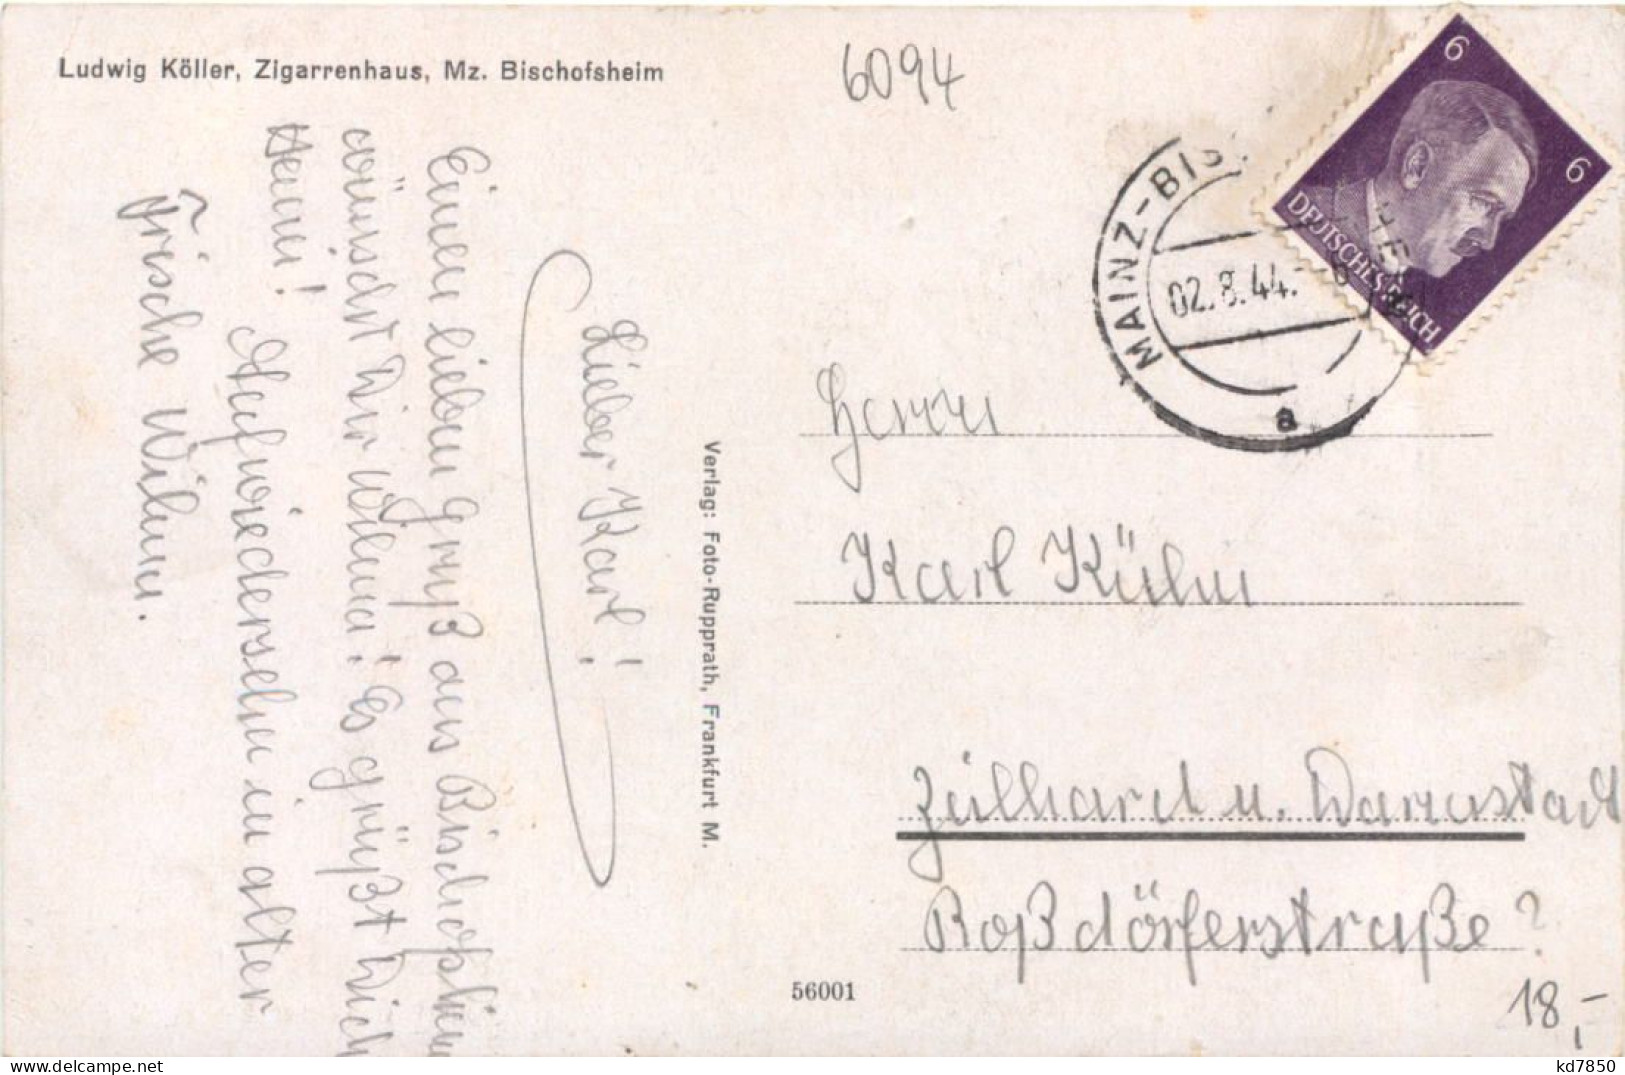 Ludwig Köller, Zigarrenhaus, Mz. Bischofsheim
6094
6
6
DEUTSCHES REICH
MAINZ-BIS
02.8.44.
a
Lieber Karl!
Einen lieben Gruß aus Bischofsheim
wünscht Dir Wilma! Es grüßt Dich
Henni!
Aufwiedersehn in alter
Frische Wilma.
Verlag: Foto-Rupprath, Frankfurt M.
Herrn
Karl Kühn
Zeilhard u. Darmstadt
Roßdörferstraße ?
56001
18,-
kd7850